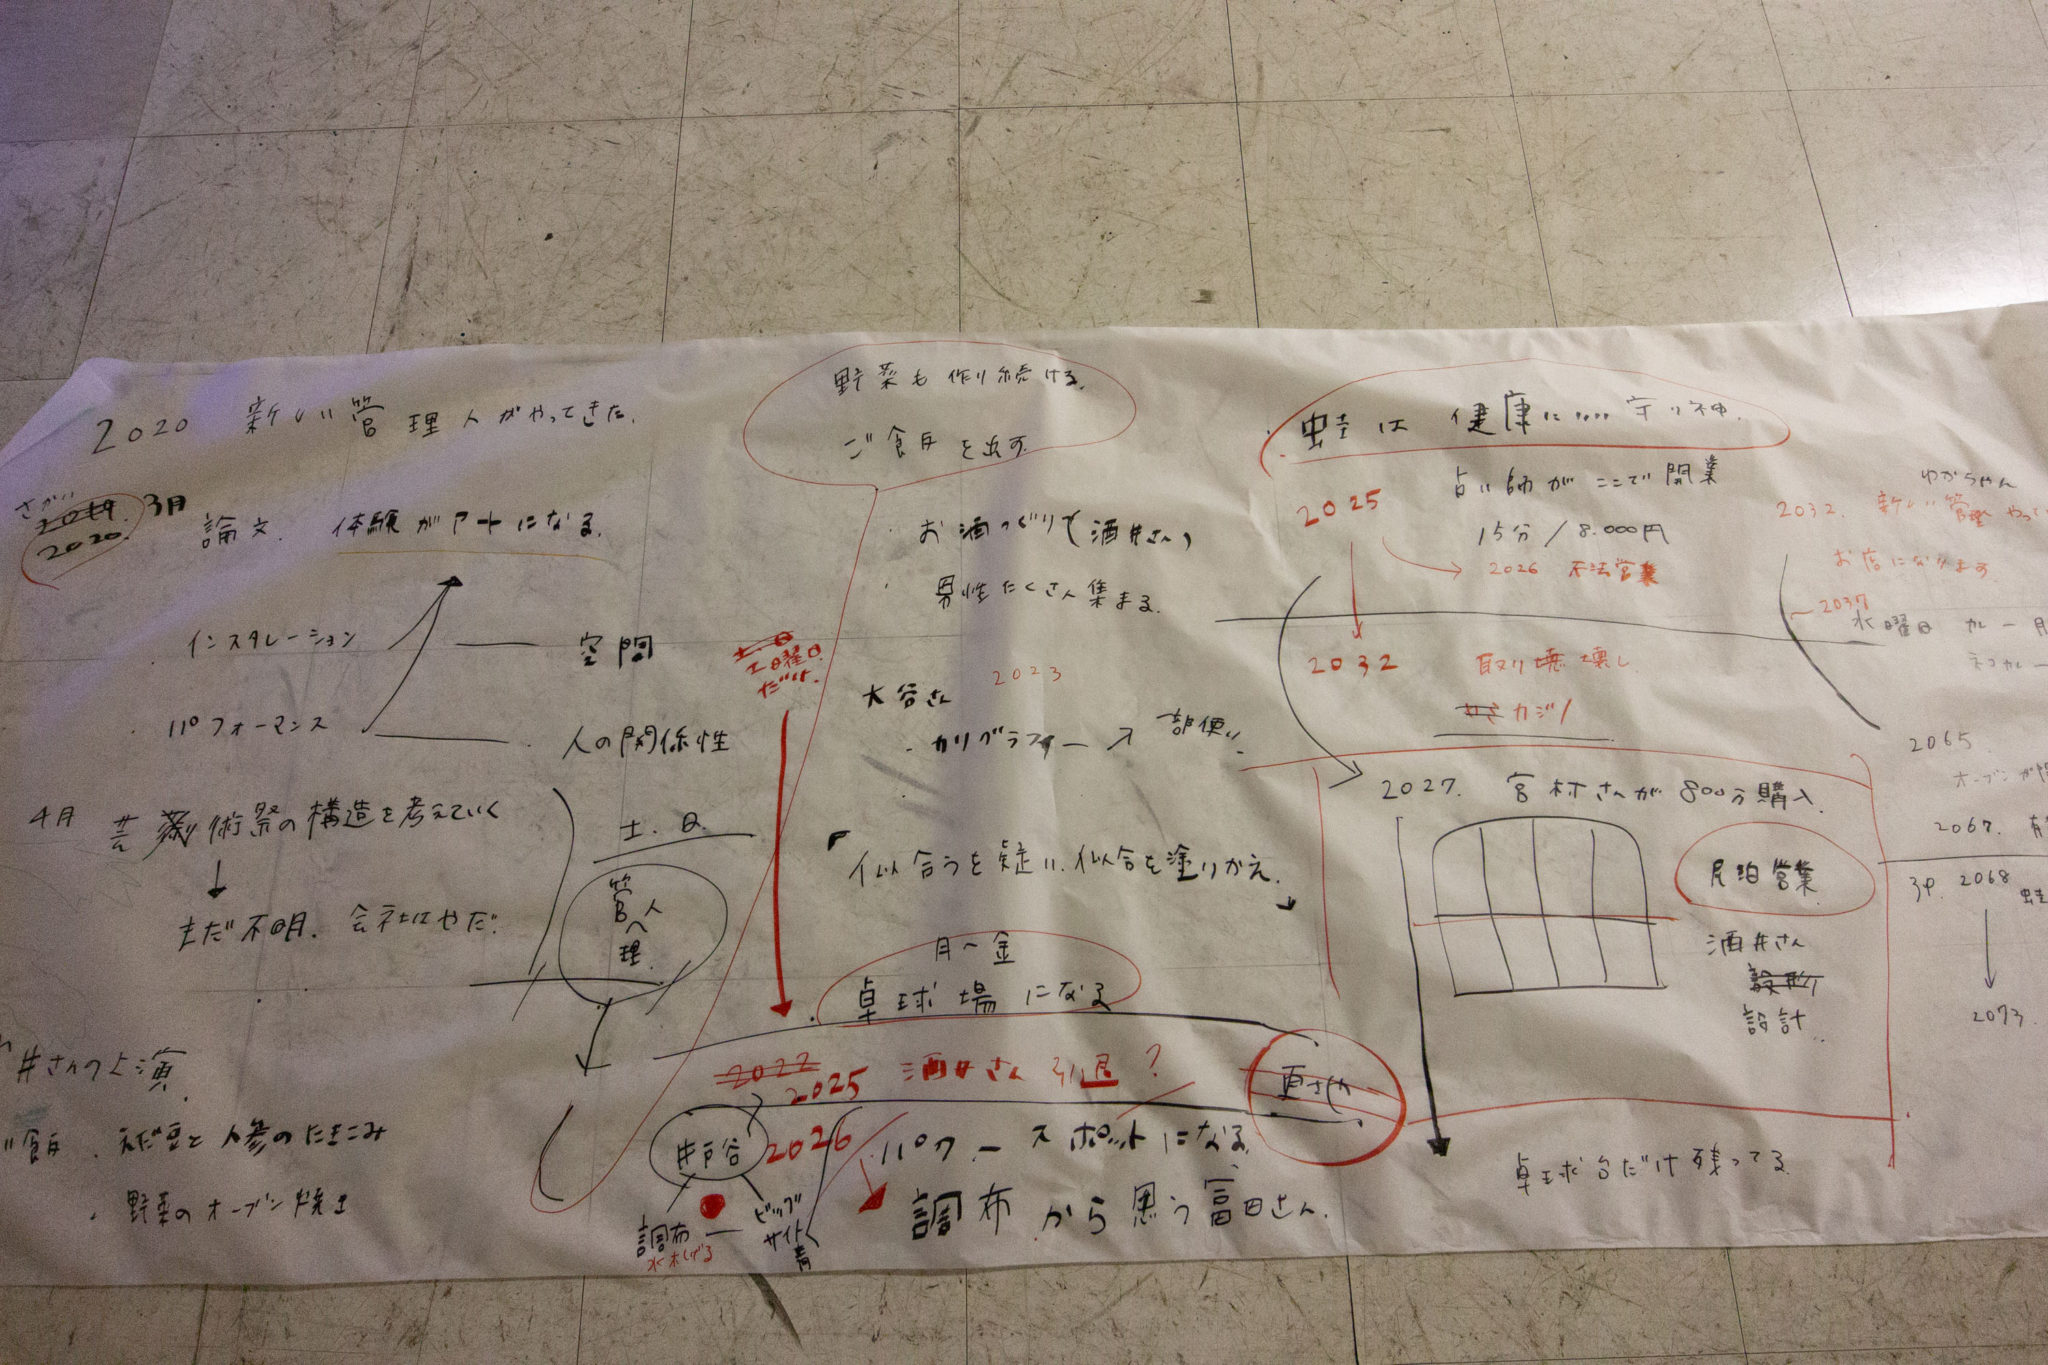 2020 新しい管理人がやってきた.
さかい
2019.
2020.
3月
論文. 体験がアートになる.
・インスタレーション
空間
・パフォーマンス
・人の関係性
4月
芸術祭の構造を考えていく
まだ不明. 会社はやだ.
土.日.
管人へ理.
井さんの上演
ご食
えだ豆と人参のたきこみ
・野菜のオーブン焼き
野菜も作り続ける.
ご食を出す
・お酒づくり(酒井さん)
・男性たくさん集まる.
土日
土日曜日.
だけ.
大谷さん
2023
・カリグラフィー
似合うを疑い.似合を塗りかえ.
月〜金
卓球場になる
2022
2025 酒井さん引退?
井戸谷
2026
パワースポットになる
調布から思う富田さん.
調布
水木しげる
ビッグ
サイト
青
蛙は健康に....守り神.
2025
占い師がここで開業
15分/8.000円
2026 不法営業
2032
取り壊し
カジノ
2027. 宮村さんが800万購入.
民泊営業
酒井さん
設計
卓球台だけ残ってる
ゆかちゃん
2032. 新しい管理人やって
お店になります
〜2037
水曜日 カレー
ネコカレー
2065
オーブンが
2067.
2068
2073.